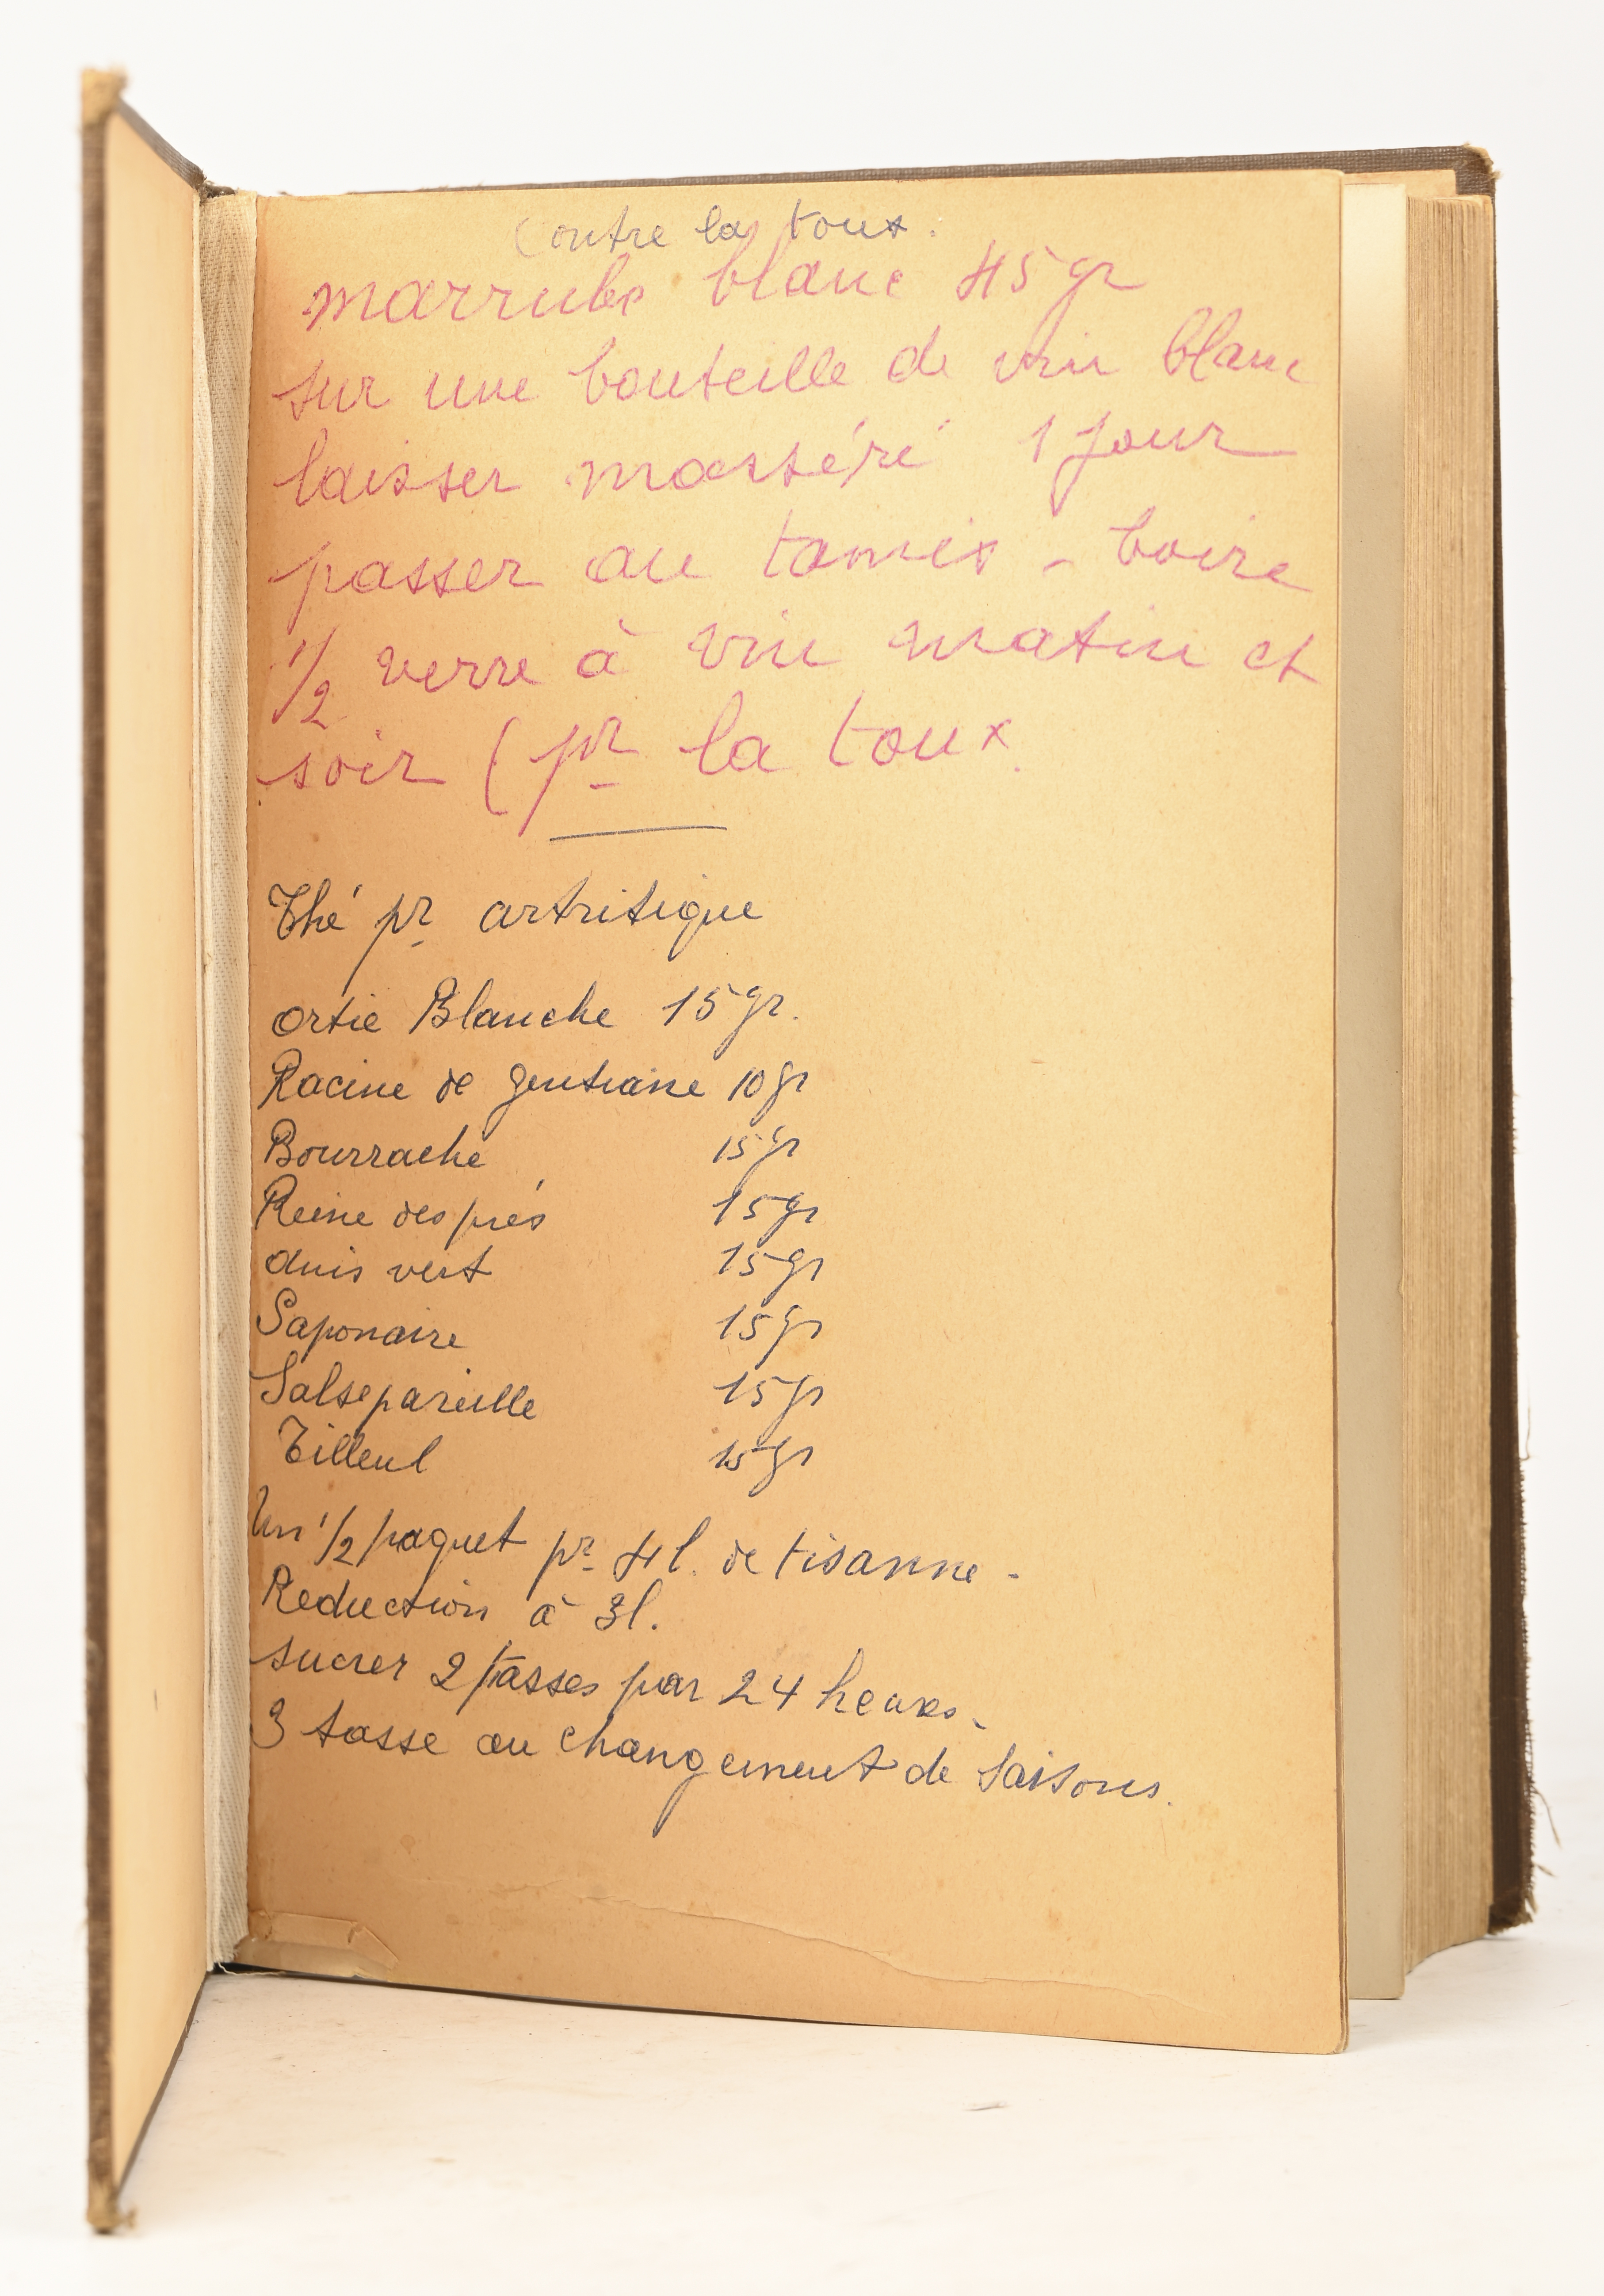 Contre la toux.
marrube blanc 45 gr
sur une bouteille de vin blanc
laisser masséré 1 jour
passer au tamis - boire
1/2 verre à vin matin et
soir (pr la toux.
Thé pr artritique
ortie Blanche 15 gr.
Racine de gentiane 10 gr
Bourrache 15 gr
Reine des prés 15 gr
anis vert 15 gr
Saponaire 15 gr
Salsepareille 15 gr
Tilleul 15 gr
Un 1/2 paquet pr 4 l. de tisanne -
Reduction à 3l.
sucrer 2 tasses par 24 heures.
3 tasse au changement de Saisons.